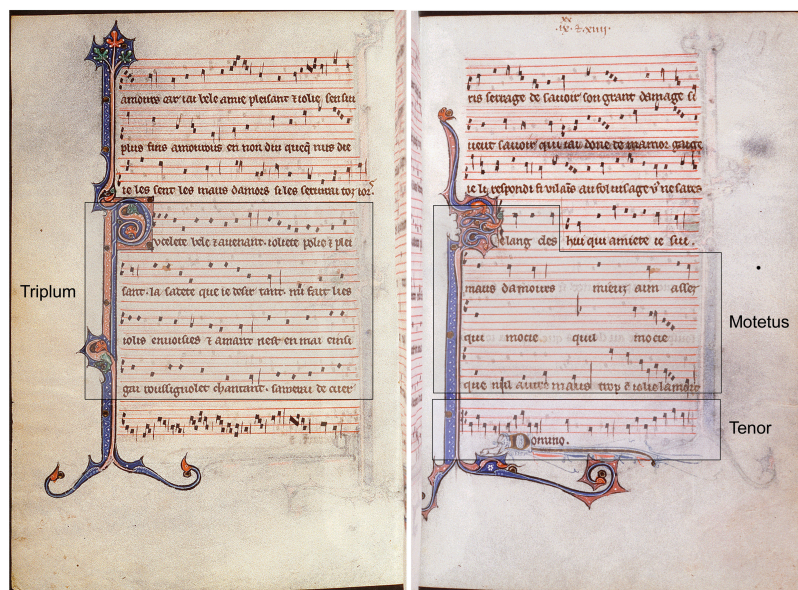 amours car iai bele amie pleisant ⁊ iolie sen sui
plus fins amourous en non diu queq̃ nus die
ie les sent les maus damors si les sentirai toz iorz.
Triplum
Svelete bele ⁊ auenant. ioliete polie ⁊ plei
sant. la sadete que ie desir tant. mi fait lies
iolis enuoisies ⁊ amant nest en mai einsi
gai roussignolet chantant. samerai de cuer
xx
.ix. ⁊ .xiiii.
ris seruage de sauoir son grant damage si
ueut sauoir qui iai done de mamor gaige
ie li respondi si vilaīs au fol uisage
elang des hui qui amiete ie sui.
maus damours mieuz aim asser
Motetus
qui mocie quil mocie
que nul autre maus trop ē iolie la mort
Tenor
Domino.